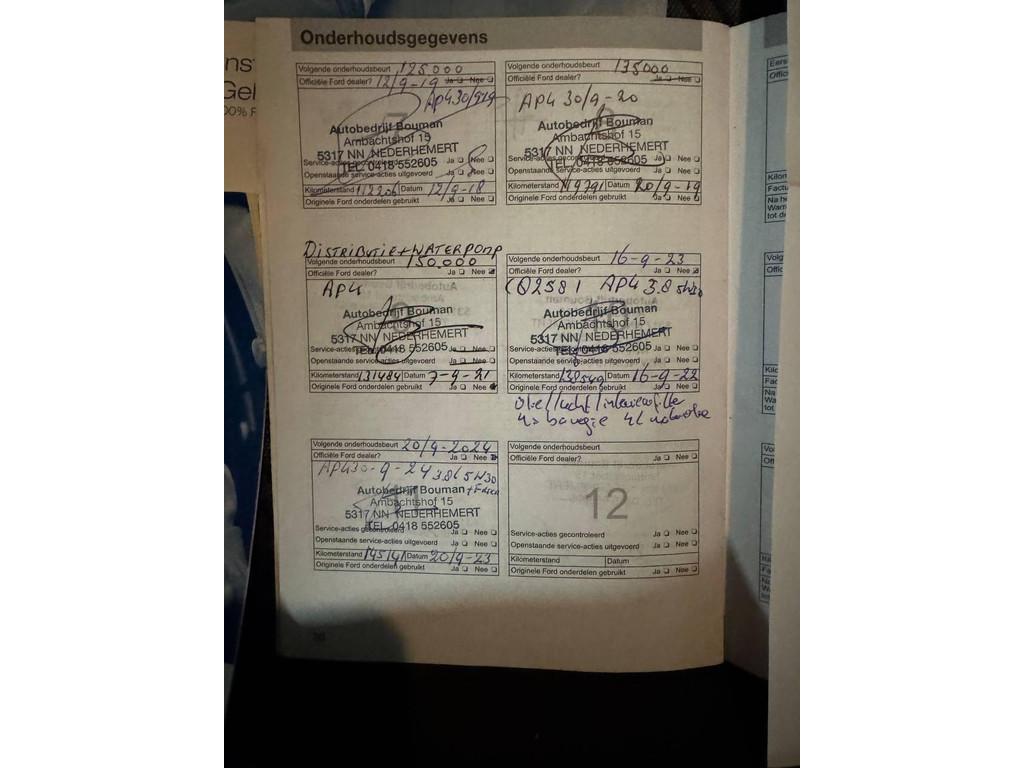 Onderhoudsgegevens
Volgende onderhoudsbeurt 125000
Officiële Ford dealer? 12/9-19 Ja Nee
APK 30/9-19
Autobedrijf Bouman
Ambachtshof 15
5317 NN NEDERHEMERT
TEL. 0418 552605
Service-acties gecontroleerd Ja Nee
Openstaande service-acties uitgevoerd Ja Nee
Kilometerstand 112206 Datum 12/9-18
Originele Ford onderdelen gebruikt Ja Nee
Volgende onderhoudsbeurt 135000
Officiële Ford dealer? Ja Nee
APK 30/9-20
Autobedrijf Bouman
Ambachtshof 15
5317 NN NEDERHEMERT
TEL. 0418 552605
Service-acties gecontroleerd Ja Nee
Openstaande service-acties uitgevoerd Ja Nee
Kilometerstand 119791 Datum 20/9-19
Originele Ford onderdelen gebruikt Ja Nee
DISTRIBUTIE + WATERPOMP
Volgende onderhoudsbeurt 150.000
Officiële Ford dealer? Ja Nee
APK
Autobedrijf Bouman
Ambachtshof 15
5317 NN NEDERHEMERT
TEL. 0418 552605
Service-acties Ja Nee
Openstaande service-acties uitgevoerd Ja Nee
Kilometerstand 131484 Datum 7-9-21
Originele Ford onderdelen gebruikt Ja Nee
Volgende onderhoudsbeurt 16-9-23
Officiële Ford dealer? Ja Nee
APK 3.8 5W20
Autobedrijf Bouman
Ambachtshof 15
5317 NN NEDERHEMERT
TEL. 0418 552605
Service-acties Ja Nee
Openstaande service-acties uitgevoerd Ja Nee
Kilometerstand 138549 Datum 16-9-22
Originele Ford onderdelen gebruikt Ja Nee
olie/lucht/interieurfilter
4x bougie
Volgende onderhoudsbeurt 20/9-2024
Officiële Ford dealer? Ja Nee
APK 30-9-24 3.8l 5W30
Autobedrijf Bouman
Ambachtshof 15
5317 NN NEDERHEMERT
TEL. 0418 552605
Service-acties gecontroleerd Ja Nee
Openstaande service-acties uitgevoerd Ja Nee
Kilometerstand Datum 20/9-23
Originele Ford onderdelen gebruikt Ja Nee
Volgende onderhoudsbeurt
Officiële Ford dealer? Ja Nee
12
Service-acties gecontroleerd Ja Nee
Openstaande service-acties uitgevoerd Ja Nee
Kilometerstand Datum
Originele Ford onderdelen gebruikt Ja Nee